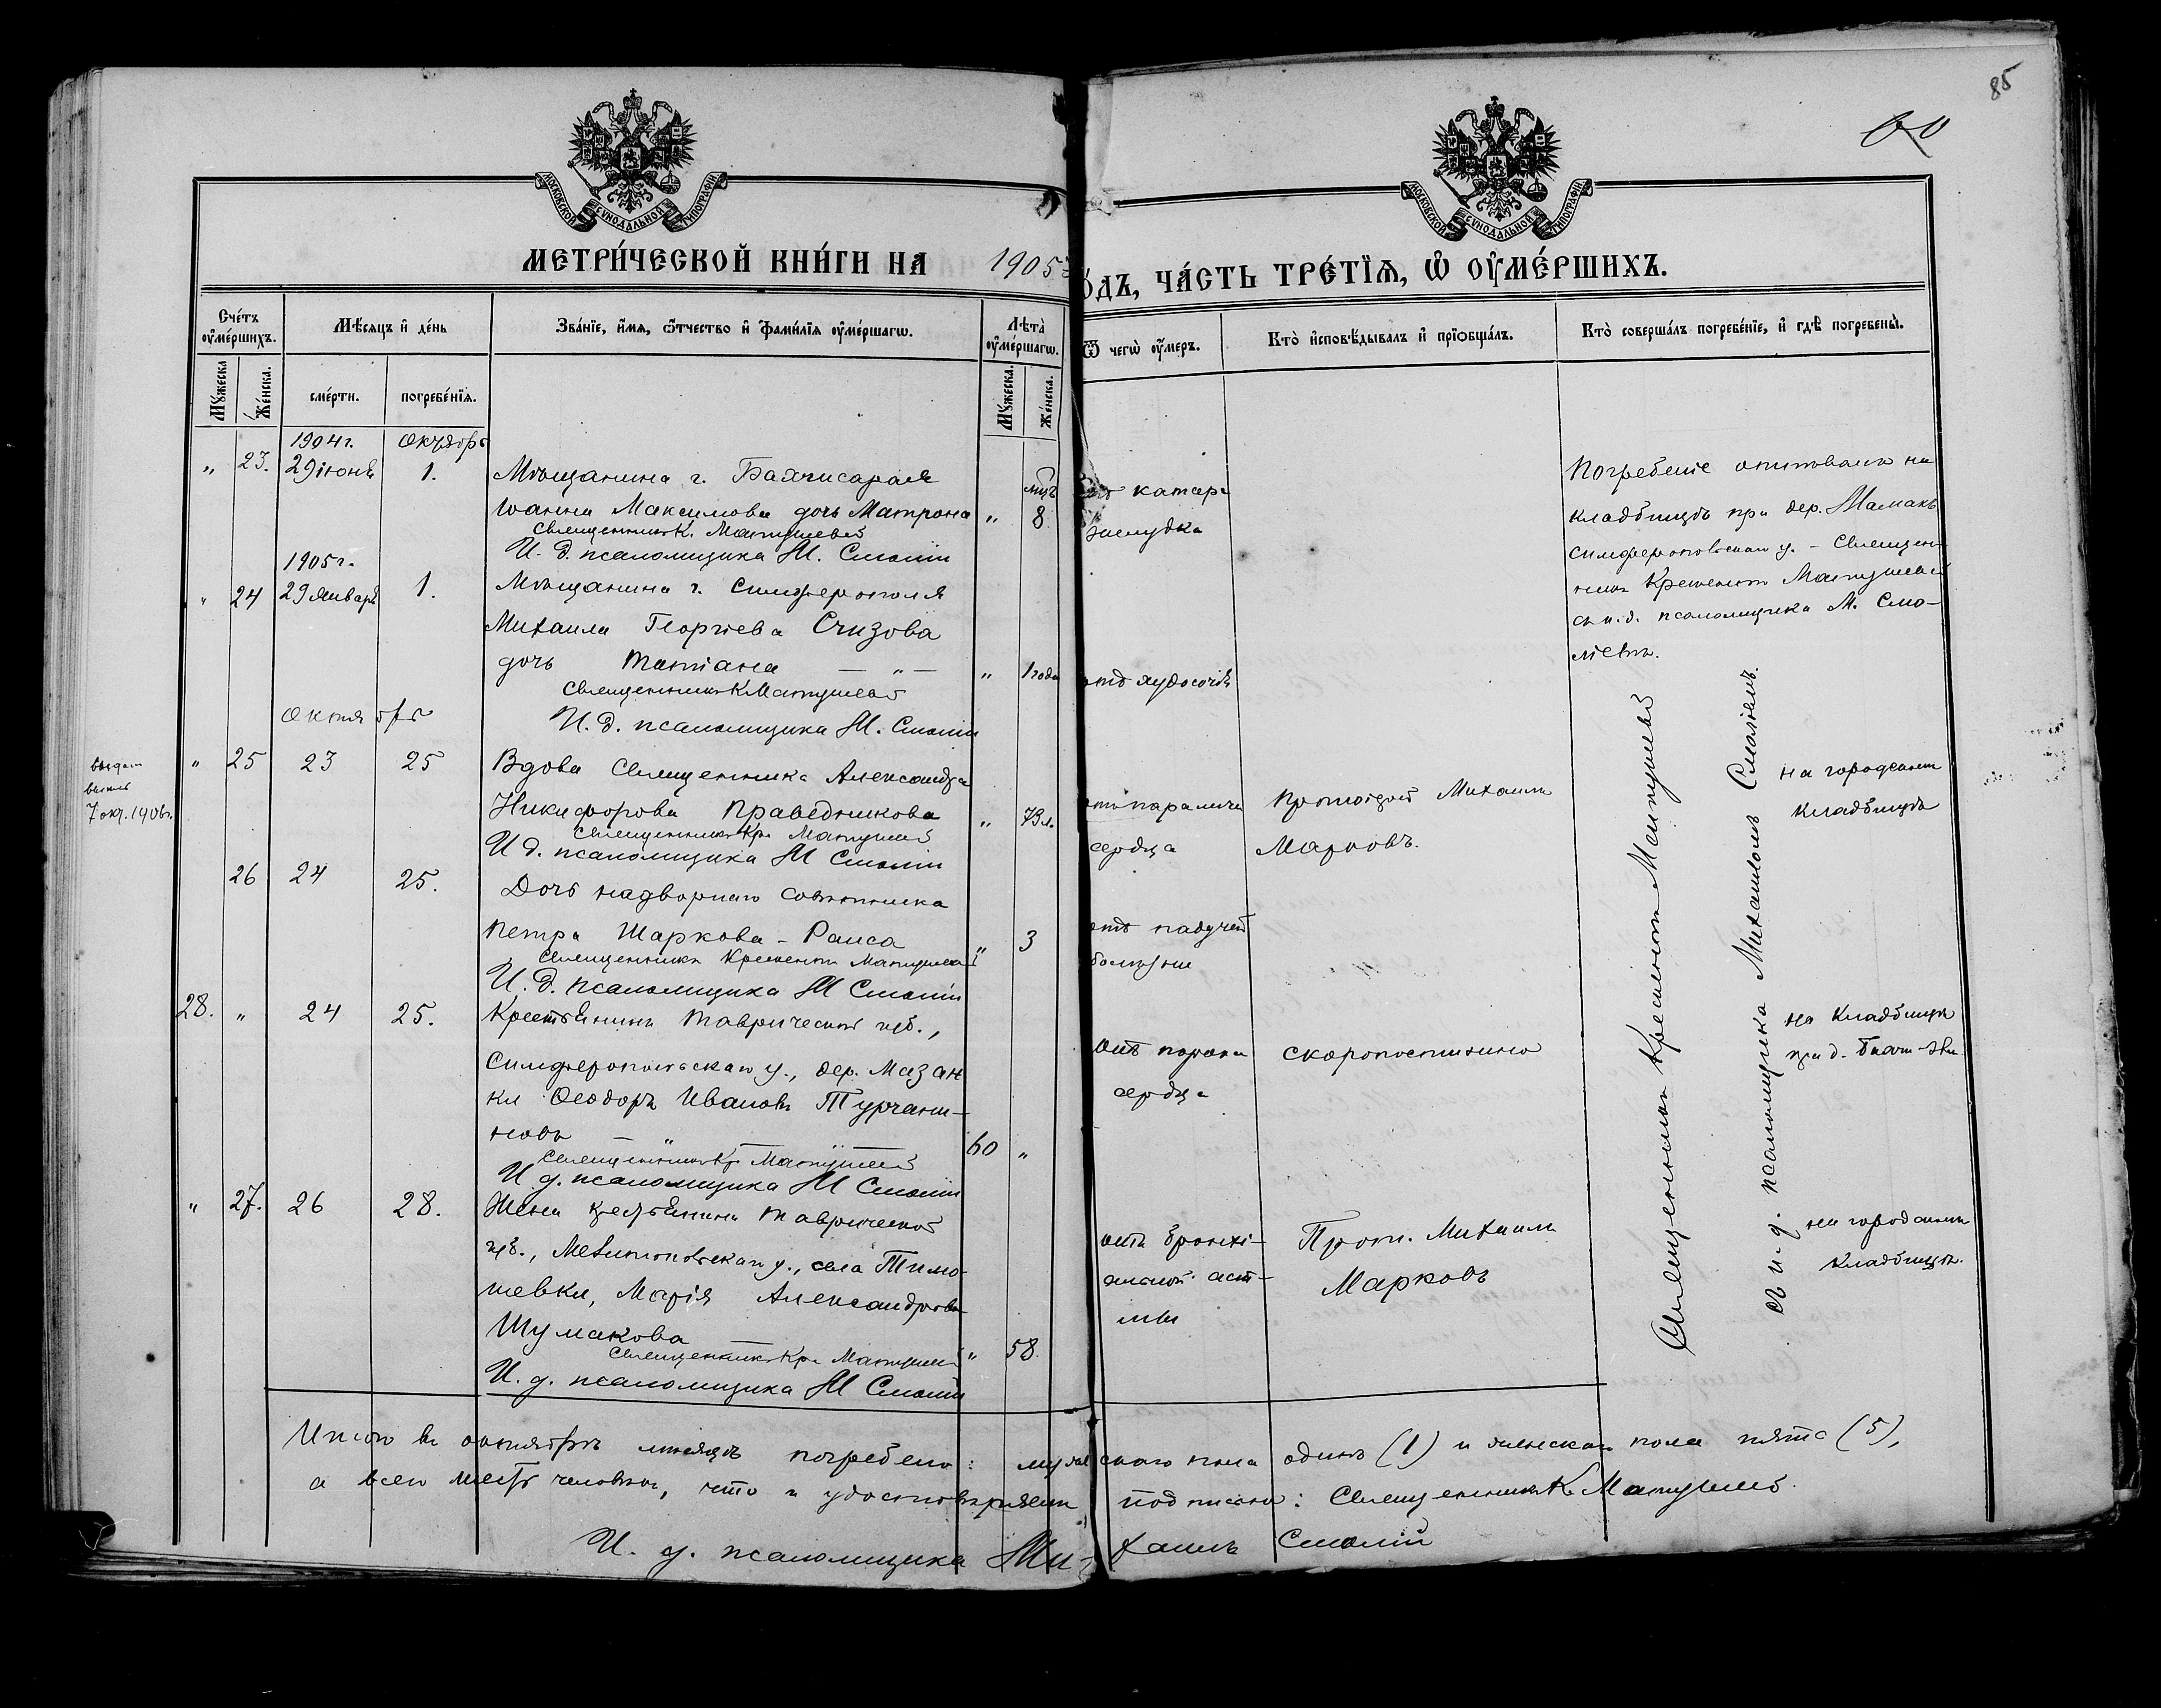 85
60
МОСКОВСКОЙ СѴНОДАЛЬНОЙ ТИПОГРАФІИ
МОСКОВСКОЙ СѴНОДАЛЬНОЙ ТИПОГРАФІИ
МЕТРИ́ЧЕСКОЙ КНИ́ГИ НА 1905 г
О́ДЪ, ЧА́СТЬ ТРЕ́ТІѦ, Ѽ ОУ҆МЕ́РШИХЪ.
Сче́тъ оу҆ме́ршихъ.
Мꙋжеска
Же́нска.
Мѣ́сяцъ и҆ де́нь
сме́рти.
погребе́нїѧ.
Зва́нїе, и҆́мѧ, ѻ҆́тчество и҆ фами́лїѧ оу҆ме́ршагѡ.
Лѣта̀ оу҆ме́ршагѡ.
Мꙋ́жеска.
Же́нска.
Ѿ чегѡ̀ оу҆́меръ.
Кто̀ и҆сповѣ́дывалъ и҆ прїѡбща́лъ.
Кто̀ соверша́лъ погребе́нїе, и҆ гдѣ̀ погребены̀.
1904 г. Октябрь
" 23. 29 іюня 1. Мѣщанина г. Бахчисарая
Іоанна Максимова дочь Матрона " мѣс. 8
Священникъ К. Матушевъ
И. д. псаломщика М. Смолій
катара
желудка
Погребеніе отпѣвалъ на
кладбищѣ при дер. Мамакъ
Симферопольскаго у. – Священ-
никъ Крескентъ Матушевъ
съ и. д. псаломщика М. Смо-
ліемъ.
1905 г.
" 24 29 января 1. Мѣщанина г. Симферополя
Михаила Георгіева Сизова
дочь Татіана — " — " 1 года
Священникъ К Матушевъ
И. д. псаломщика М. Смолій
отъ худосочія
Октябрь
выдан
7 окт. 1906 г.
" 25 23 25 Вдова Священника Александра
Никифорова Праведникова " 73 л.
Священникъ Кр. Матушевъ
И д. псаломщика М Смолій
отъ паралича
сердца
Протоіерей Михаилъ
Марковъ.
на городскомъ
кладбищѣ
26 24 25. Дочь надворнаго совѣтника
Петра Шаркова – Раиса " 3
Священникъ Крескентъ Матушевъ
И. д. псаломщика М Смолій
отъ падучей
болѣзни
28. " 24 25. Крестьянинъ Таврической губ.,
Симферопольскаго у., дер. Мазан
ки Ѳеодоръ Ивановъ Турчани-
новъ — " — 60 "
Священникъ Кр Матушевъ
И д. псаломщика М Смолій
отъ порока
сердца
скоропостижно
на кладбищѣ
при д.
" 27. 26 28. Жена крестьянина Таврической
губ., Мелитопольскаго у., села Тимо-
шевки, Марія Александрова
Шумакова — " 58.
Священникъ Кр. Матушевъ
И. д. псаломщика М Смолій
отъ бронхі-
альной аст-
мы
Прот. Михаилъ
Марковъ
на городскомъ
кладбищѣ.
Священникъ Крескентъ Матушевъ
съ и. д. псаломщика Михаиломъ Смоліемъ.
Итого въ октябрѣ мѣсяцѣ погребено: мужескаго пола одинъ (1) и женскаго пола пять (5),
а всего шесть человѣкъ, что и удостовѣряемъ подписомъ: Священникъ К. Матушевъ.
И. д. псаломщика Михаилъ Смолій